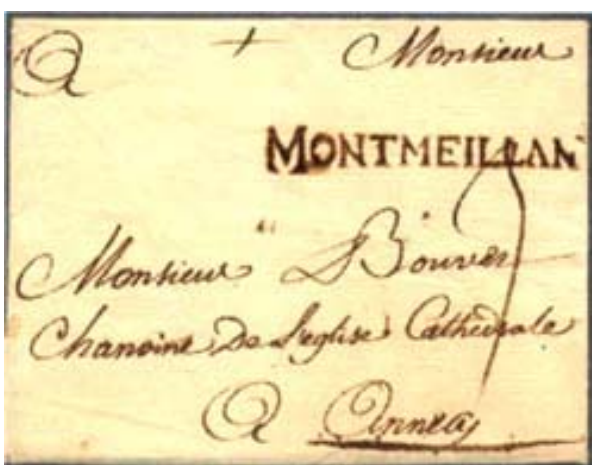 A Monsieur
MONTMEILLAN
Monsieur Bouver
Chanoine De L'eglise Cathedrale
A Annecy